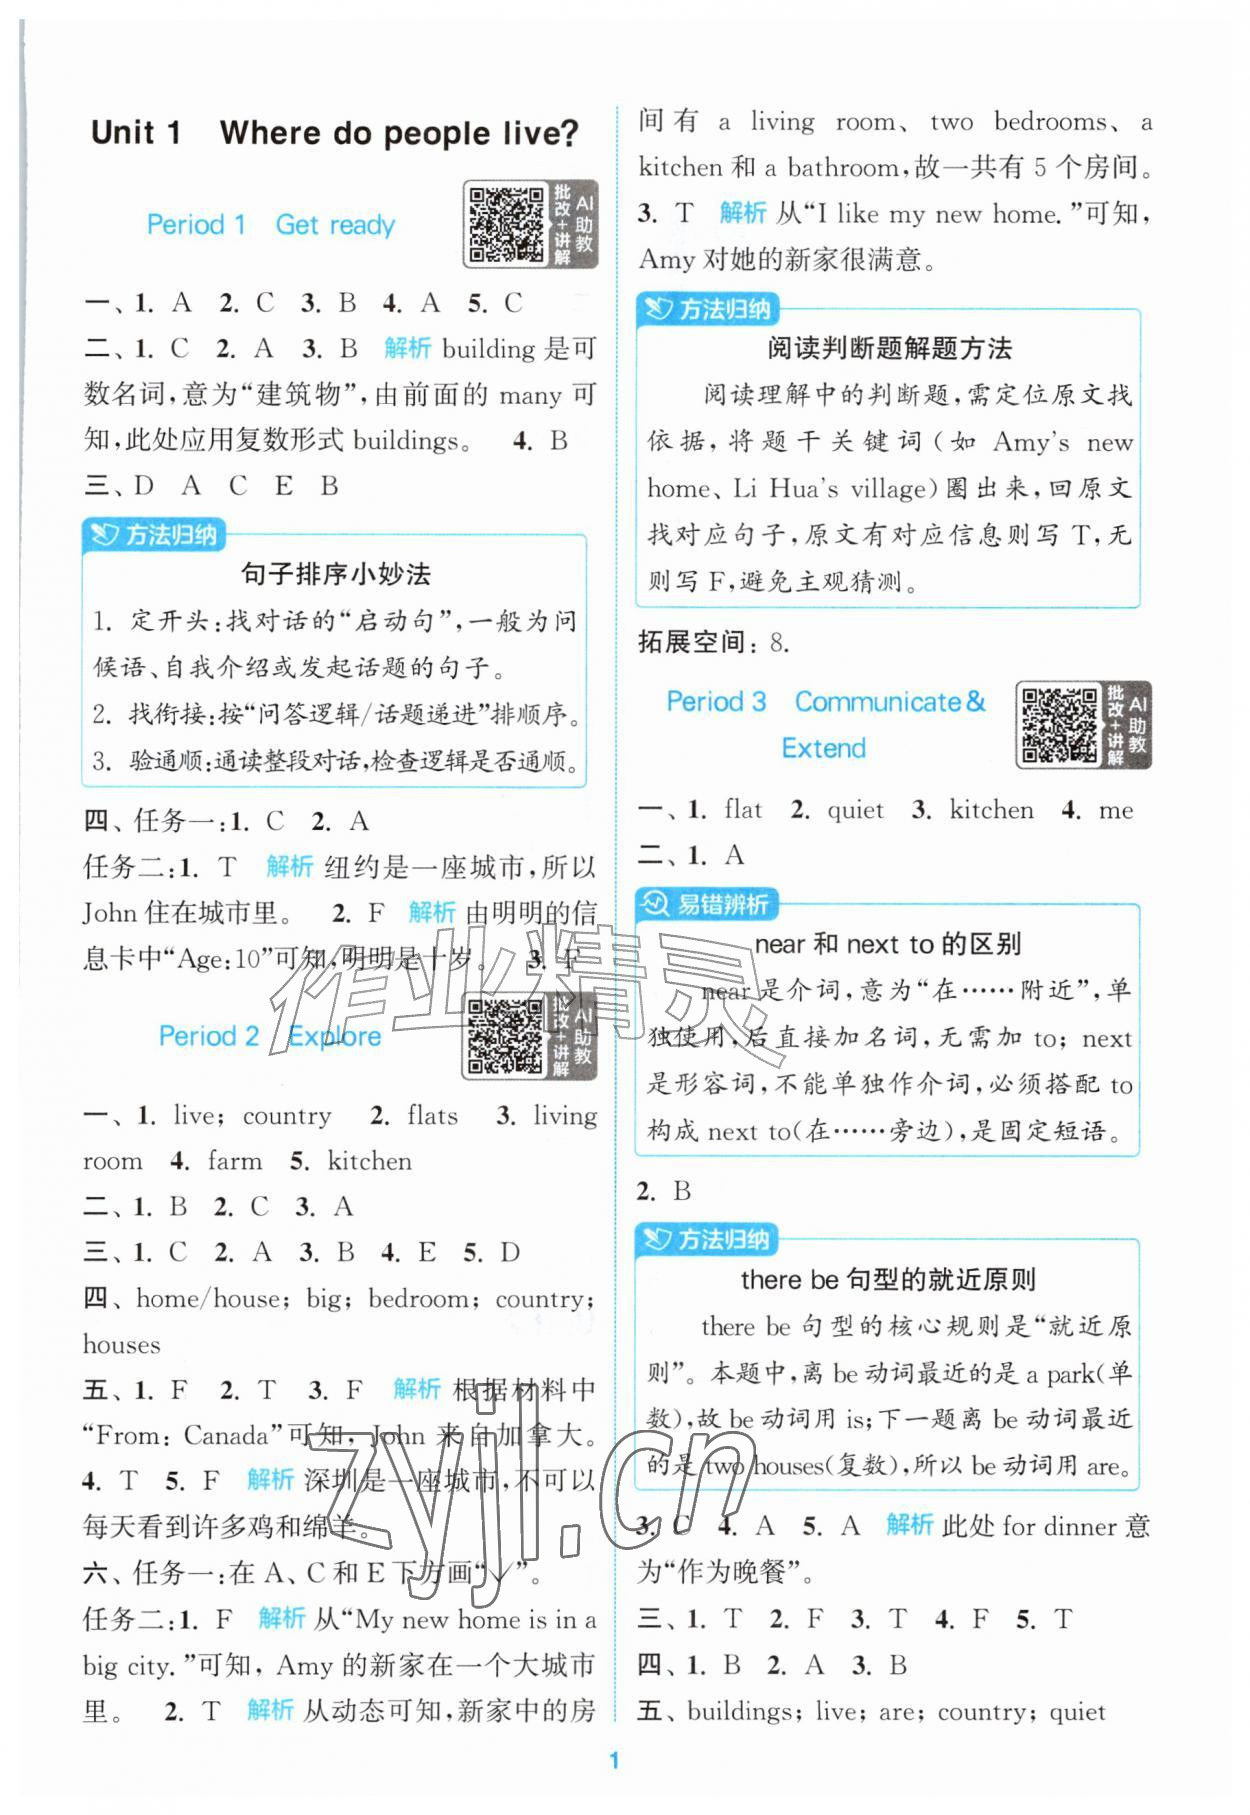 Unit 1 Where do people live?
Period 1 Get ready
批改+讲解
AI助教
一、1. A 2. C 3. B 4. A 5. C
二、1. C 2. A 3. B 解析 building 是可
数名词,意为“建筑物”,由前面的 many 可
知,此处应用复数形式 buildings。 4. B
三、D A C E B
方法归纳
句子排序小妙法
1. 定开头:找对话的“启动句”,一般为问
候语、自我介绍或发起话题的句子。
2. 找衔接:按“问答逻辑/话题递进”排顺序。
3. 验通顺:通读整段对话,检查逻辑是否通顺。
四、任务一:1. C 2. A
任务二:1. T 解析 纽约是一座城市,所以
John 住在城市里。 2. F 解析 由明明的信
息卡中“Age:10”可知,明明是十岁。 3. F
Period 2 Explore
批改+讲解
AI助教
一、1. live; country 2. flats 3. living
room 4. farm 5. kitchen
二、1. B 2. C 3. A
三、1. C 2. A 3. B 4. E 5. D
四、home/house; big; bedroom; country;
houses
五、1. F 2. T 3. F 解析 根据材料中
“From: Canada”可知,John 来自加拿大。
4. T 5. F 解析 深圳是一座城市,不可以
每天看到许多鸡和绵羊。
六、任务一:在 A、C 和 E 下方画“✓”。
任务二:1. F 解析 从“My new home is in a
big city.”可知,Amy 的新家在一个大城市
里。 2. T 解析 从动态可知,新家中的房
间有 a living room、two bedrooms、a
kitchen 和 a bathroom,故一共有 5 个房间。
3. T 解析 从“I like my new home.”可知,
Amy 对她的新家很满意。
方法归纳
阅读判断题解题方法
阅读理解中的判断题,需定位原文找
依据,将题干关键词(如 Amy's new
home、Li Hua's village)圈出来,回原文
找对应句子,原文有对应信息则写 T,无
则写 F,避免主观猜测。
拓展空间:8.
Period 3 Communicate &
Extend
批改+讲解
AI助教
一、1. flat 2. quiet 3. kitchen 4. me
二、1. A
易错辨析
near 和 next to 的区别
near 是介词,意为“在……附近”,单
独使用,后直接加名词,无需加 to; next
是形容词,不能单独作介词,必须搭配 to
构成 next to(在……旁边),是固定短语。
2. B
方法归纳
there be 句型的就近原则
there be 句型的核心规则是“就近原
则”。本题中,离 be 动词最近的是 a park(单
数),故 be 动词用 is;下一题离 be 动词最近
的是 two houses(复数),所以 be 动词用 are。
3. C 4. A 5. A 解析 此处 for dinner 意
为“作为晚餐”。
三、1. T 2. F 3. T 4. F 5. T
四、1. B 2. A 3. B
五、buildings; live; are; country; quiet
作业精灵
zyjl.cn
1